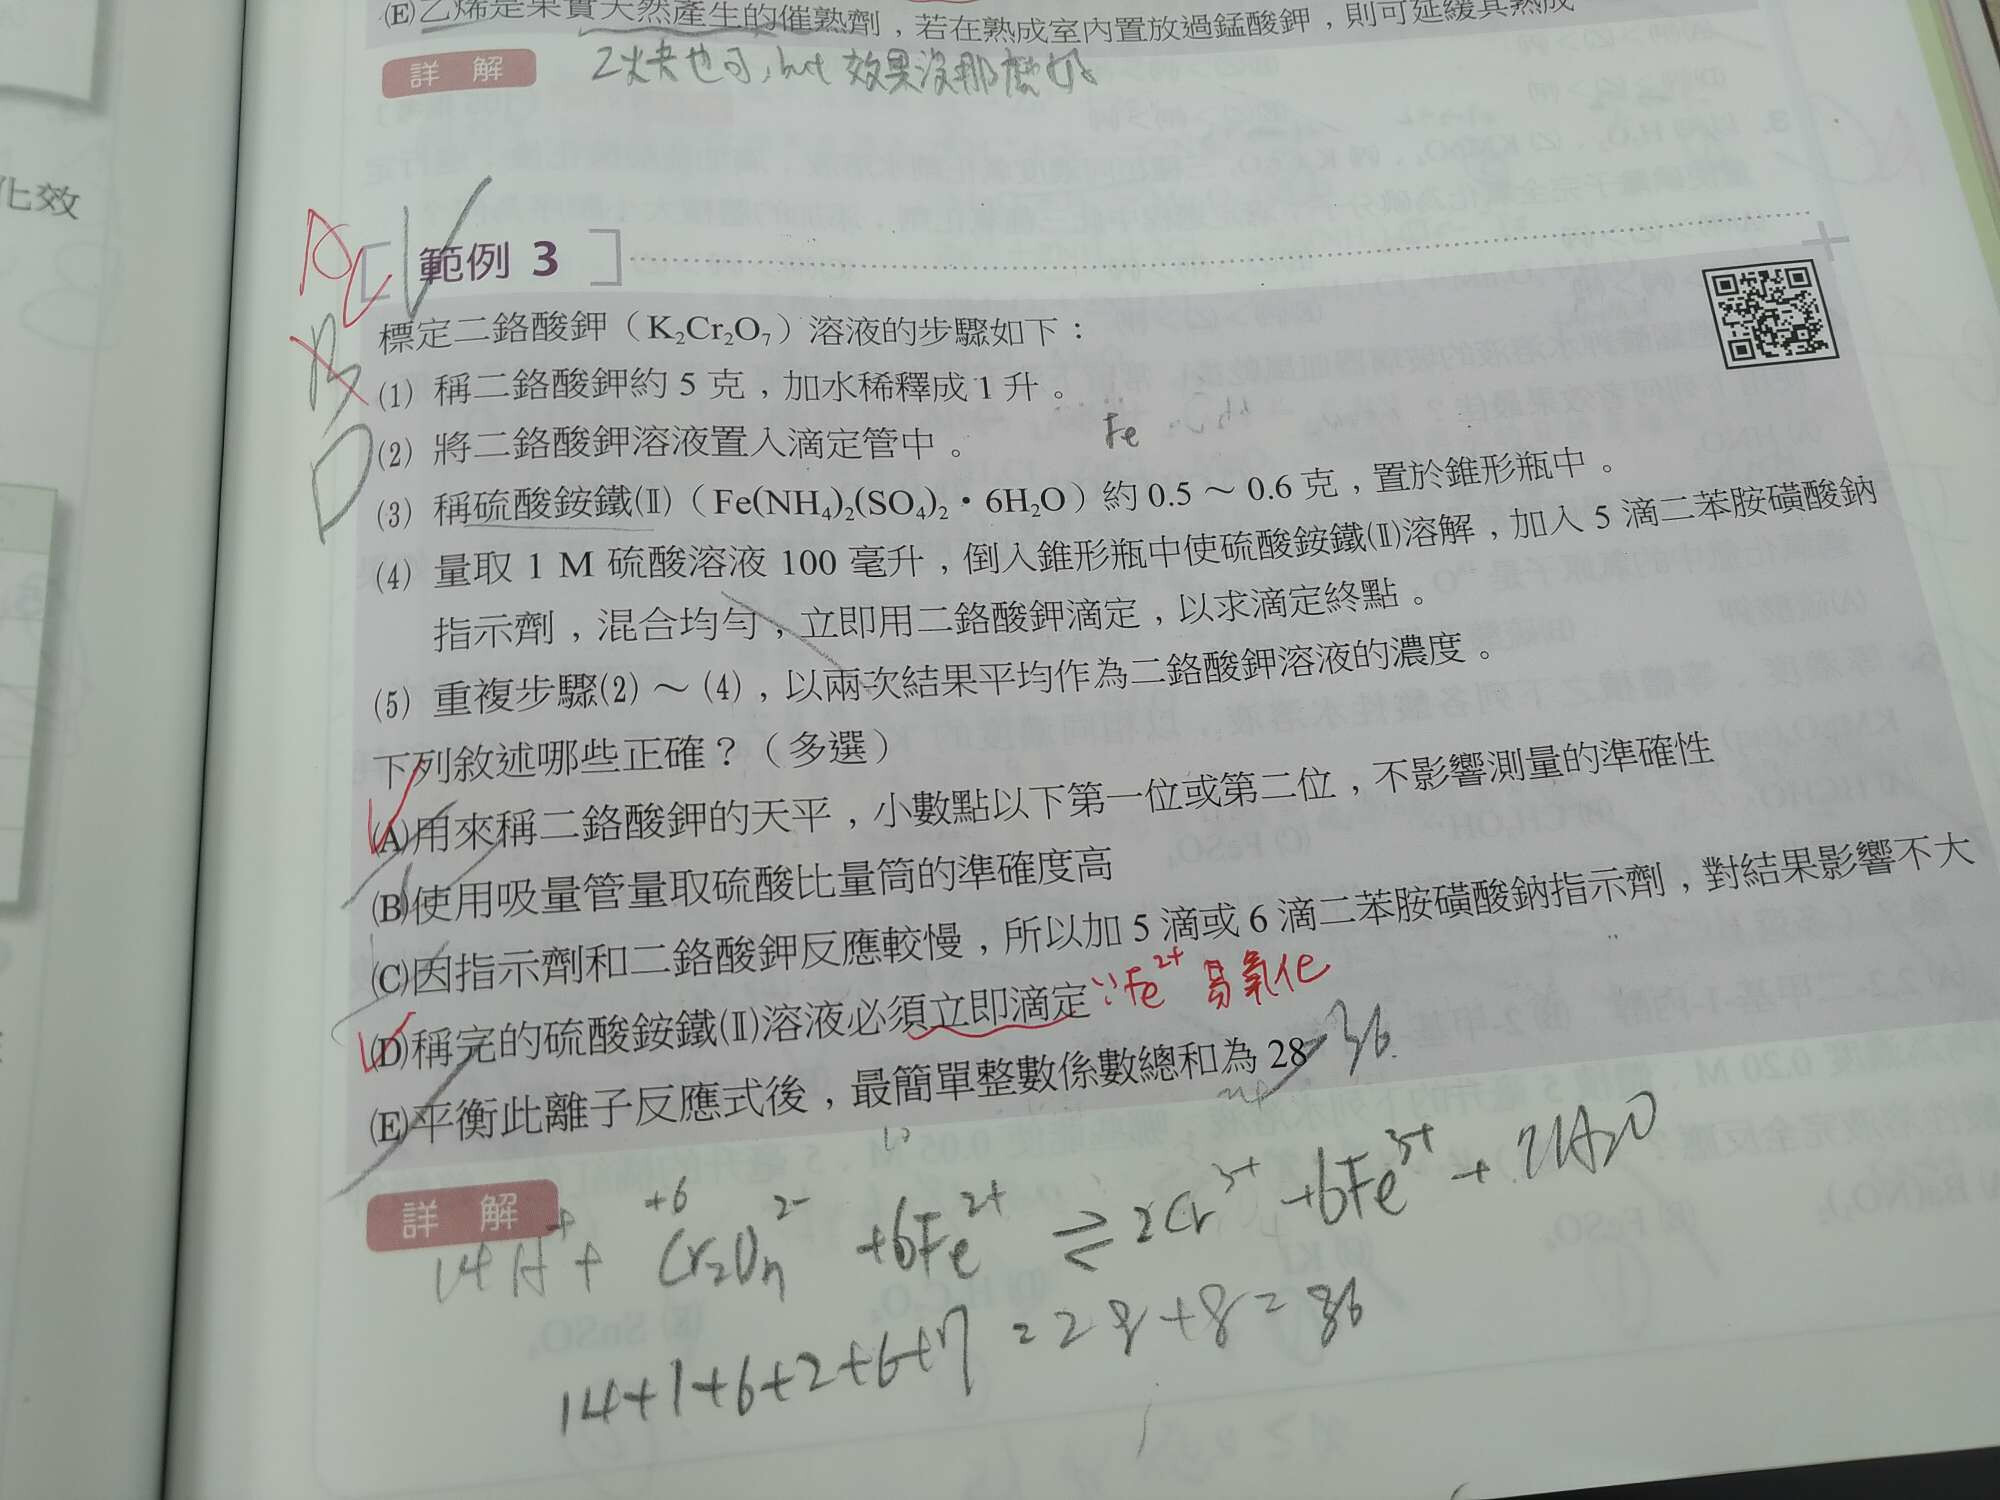 (E)乙烯是果實天然產生的催熟劑，若在熟成室內置放過錳酸鉀，則可延緩其熟成
詳 解
乙炔也可, but 效果沒那麼好
化效
AC
B
D
範例 3
標定二鉻酸鉀（K₂Cr₂O₇）溶液的步驟如下：
(1) 稱二鉻酸鉀約 5 克，加水稀釋成 1 升。
Fe
(2) 將二鉻酸鉀溶液置入滴定管中。
(3) 稱硫酸銨鐵(Ⅱ)（Fe(NH₄)₂(SO₄)₂・6H₂O）約 0.5～0.6 克，置於錐形瓶中。
(4) 量取 1 M 硫酸溶液 100 毫升，倒入錐形瓶中使硫酸銨鐵(Ⅱ)溶解，加入 5 滴二苯胺磺酸鈉
指示劑，混合均勻，立即用二鉻酸鉀滴定，以求滴定終點。
(5) 重複步驟(2)～(4)，以兩次結果平均作為二鉻酸鉀溶液的濃度。
下列敘述哪些正確？（多選）
(A)用來稱二鉻酸鉀的天平，小數點以下第一位或第二位，不影響測量的準確性
(B)使用吸量管量取硫酸比量筒的準確度高
(C)因指示劑和二鉻酸鉀反應較慢，所以加 5 滴或 6 滴二苯胺磺酸鈉指示劑，對結果影響不大
(D)稱完的硫酸銨鐵(Ⅱ)溶液必須立即滴定 ∵Fe²⁺ 易氧化
(E)平衡此離子反應式後，最簡單整數係數總和為 28 36
詳 解
+6
14H⁺ + Cr₂O₇²⁻ +6Fe²⁺ ⇌ 2Cr³⁺ +6Fe³⁺ + 7H₂O
14+1+6+2+6+7 = 28+8 = 36